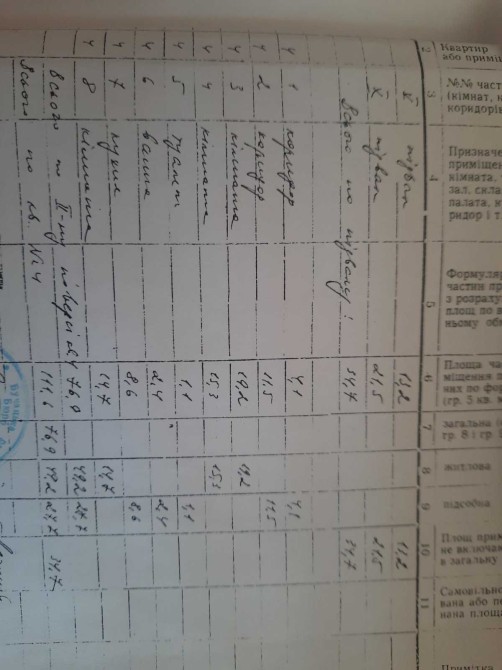 Квартир
або приміщ
№№ част
(кімнат, к
коридорів
Призначе
приміщен
кімната,
зал, скла
палата, к
ридор і т.
Формуляр
частин пр
з розраху
площ по в
ньому об
Площа ча
міщення п
них по фор
(гр. 5 кв. м
загальна (
гр. 8 і гр.
житлова
підсобна
Площ прим
не включа
в загальну
Самовільно
вана або пе
нана площа
Примітка
2 3 4 5 6 7 8 9 10 11
підвал 13,2 13,2
X підвал 21,5 21,5
Всього по підвалу: 34,7 34,7
4 1 коридор 4,1 4,1
4 2 коридор 11,5 11,5
4 3 кімната 19,2 19,2
4 4 кімната 15,3 15,3
4 5 туалет 1,1 1,1
4 6 ванна 2,4 2,4
4 7 кухня 8,6 8,6
4 8 кімната 14,7 14,7
Всього по II-му поверсі 76,9 49,2 27,7
Всього по кв. №4 111,6 76,9 49,2 27,7 34,7